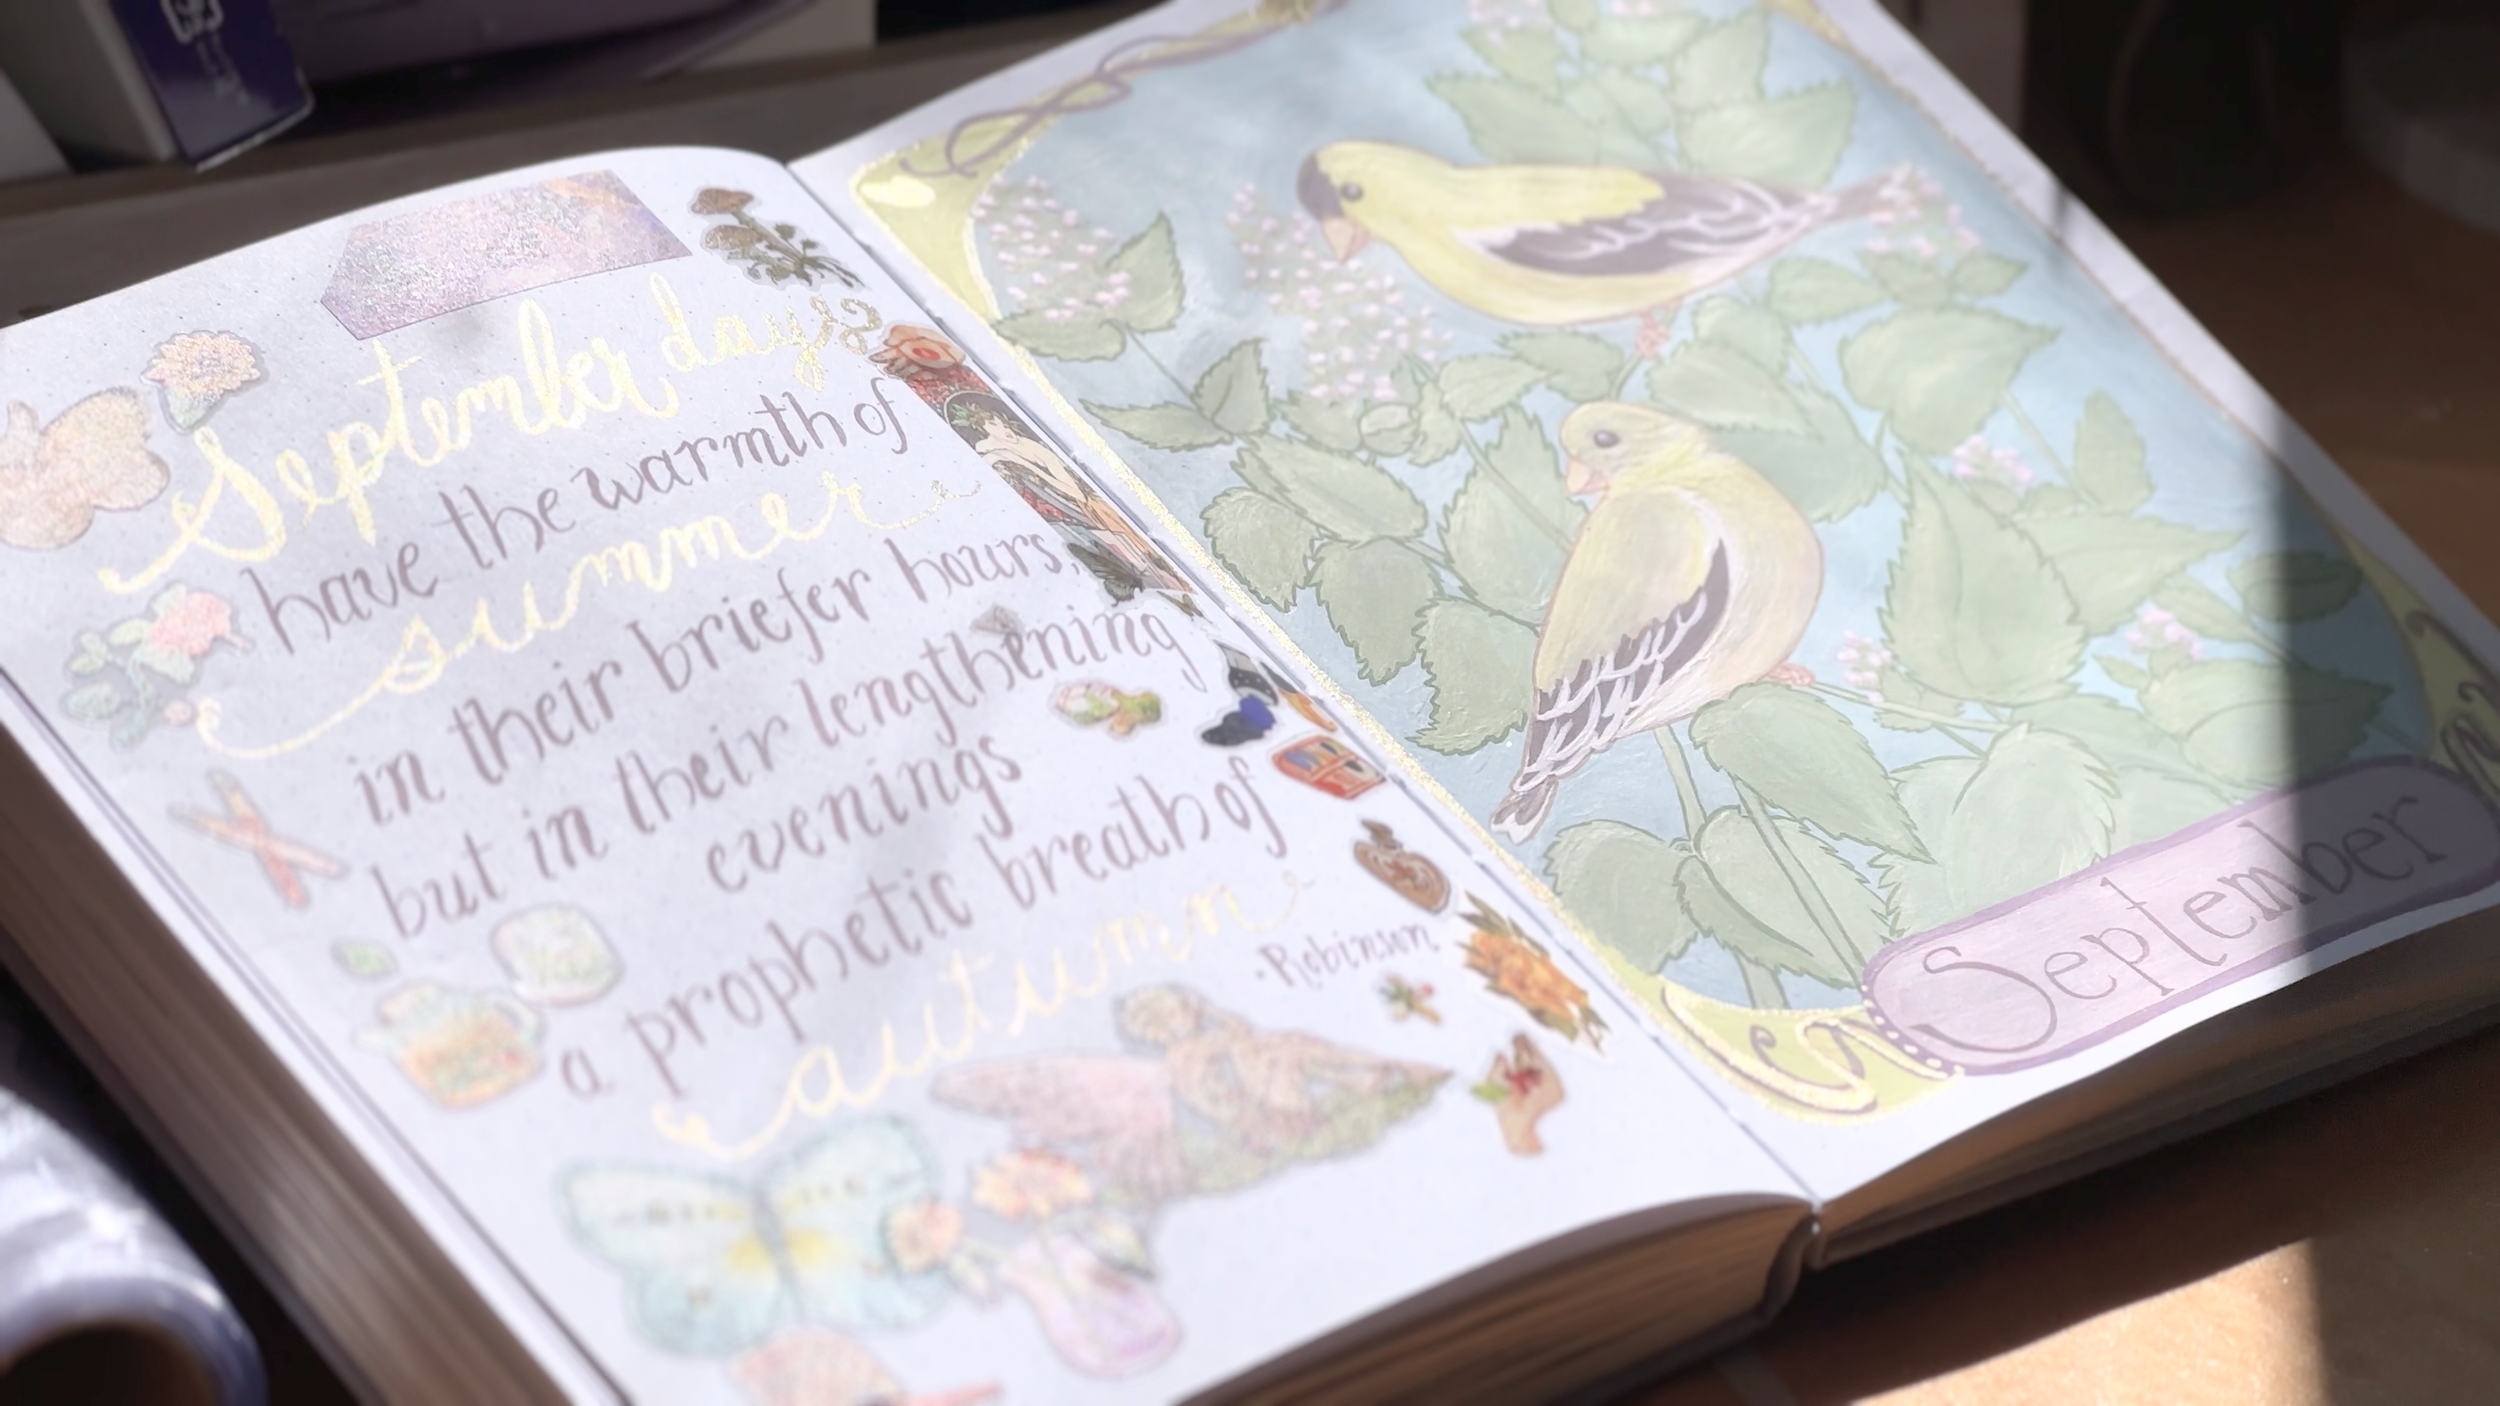 September days
have the warmth of
summer
in their briefer hours,
but in their lengthening
evenings
a prophetic breath of
autumn
·Robinson
September